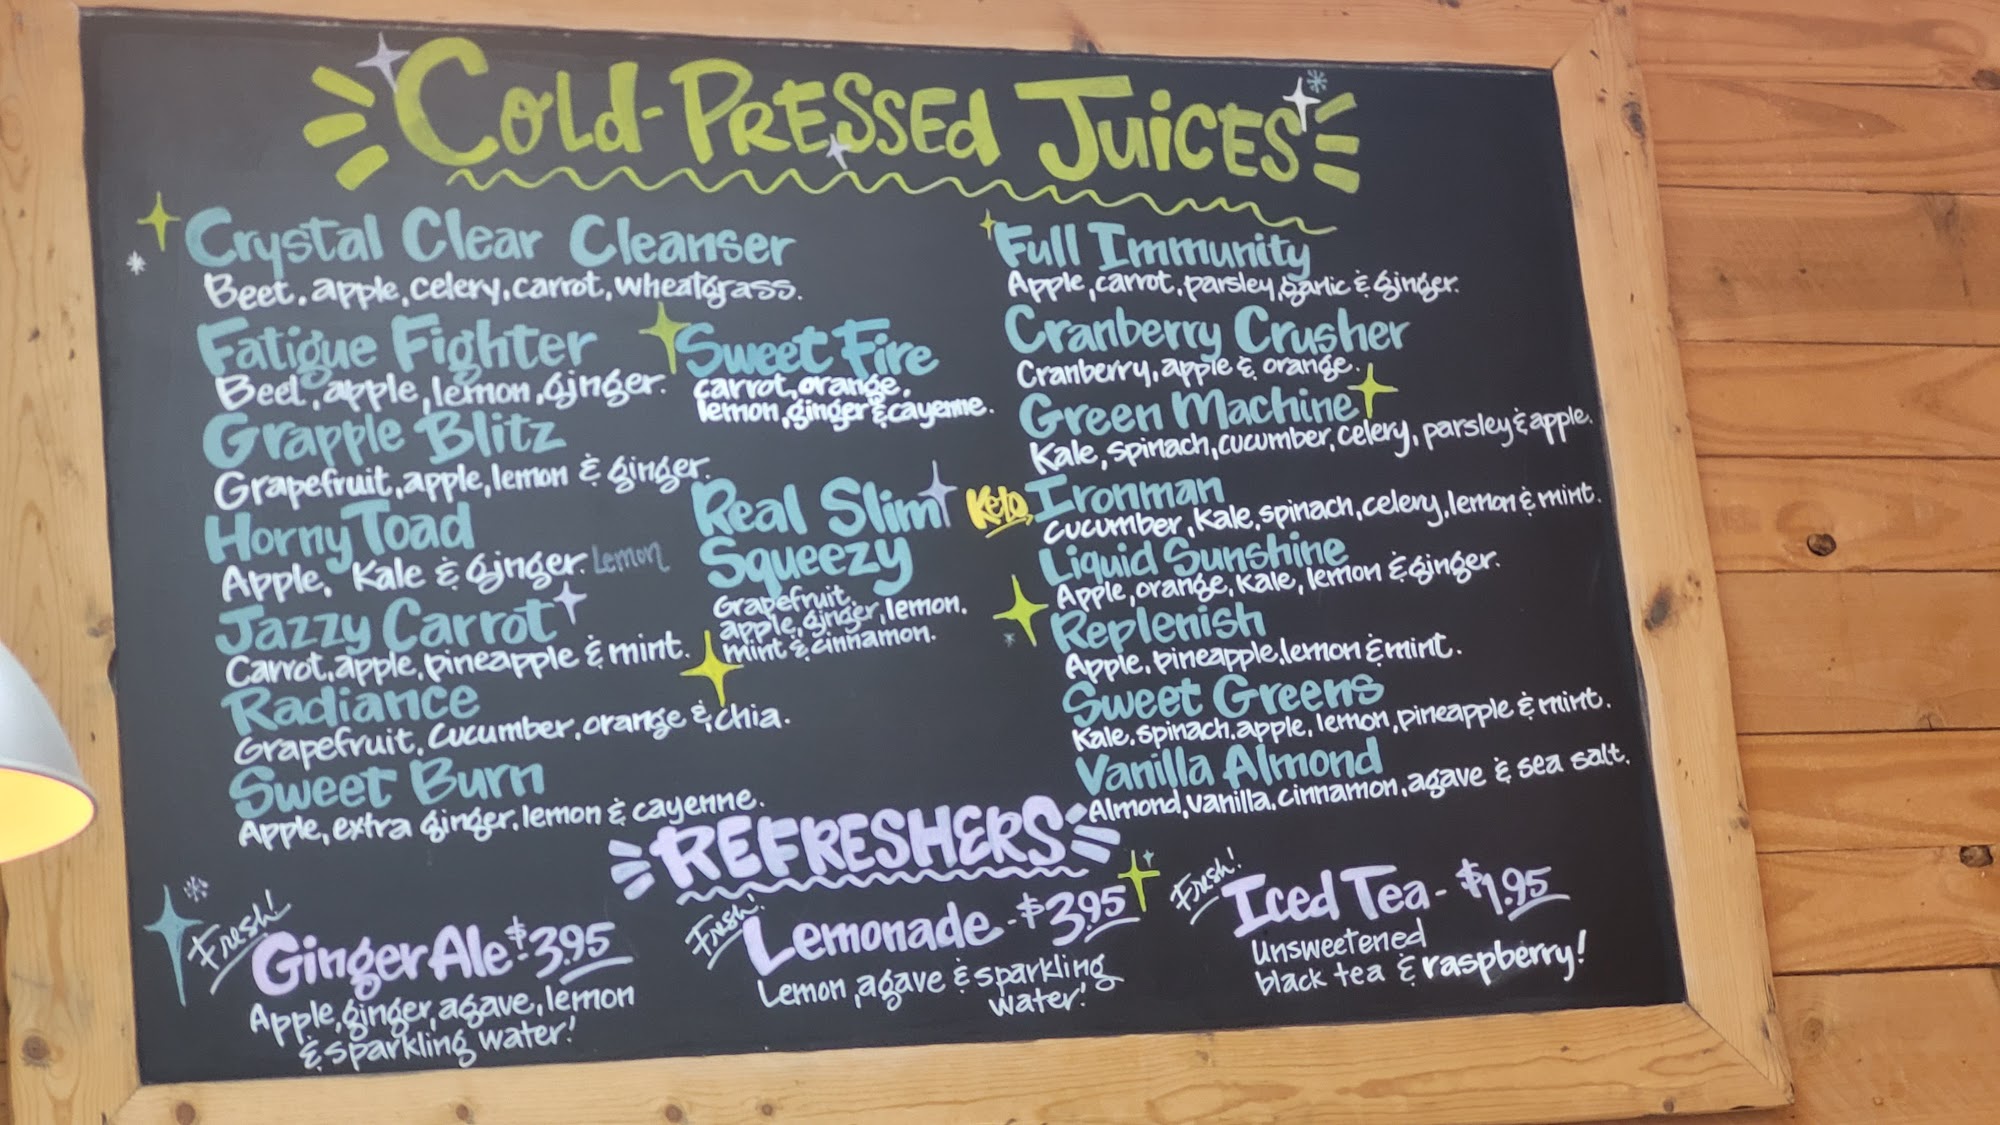 Cold-Pressed Juices
Crystal Clear Cleanser
Beet, apple, celery, carrot, wheatgrass.
Fatigue Fighter
Beet, apple, lemon, ginger.
Grapple Blitz
Grapefruit, apple, lemon & ginger.
Horny Toad
Apple, Kale & ginger. Lemon
Jazzy Carrot
Carrot, apple, pineapple & mint.
Radiance
Grapefruit, cucumber, orange & chia.
Sweet Burn
Apple, extra ginger, lemon & cayenne.
Sweet Fire
carrot, orange,
lemon, ginger & cayenne.
Real Slim
Squeezy
Grapefruit,
apple, ginger, lemon,
mint & cinnamon.
Full Immunity
Apple, carrot, parsley, garlic & ginger.
Cranberry Crusher
Cranberry, apple & orange.
Green Machine
Kale, spinach, cucumber, celery, parsley & apple.
Keto Ironman
cucumber, Kale, spinach, celery, lemon & mint.
Liquid Sunshine
Apple, orange, Kale, lemon & ginger.
Replenish
Apple, pineapple, lemon & mint.
Sweet Greens
Kale, spinach, apple, lemon, pineapple & mint.
Vanilla Almond
Almond, vanilla, cinnamon, agave & sea salt.
REFRESHERS
Fresh!
Ginger Ale - $3.95
Apple, ginger, agave, lemon
& sparkling water!
Fresh!
Lemonade - $3.95
Lemon, agave & sparkling
water!
Fresh!
Iced Tea - $1.95
Unsweetened
black tea & raspberry!